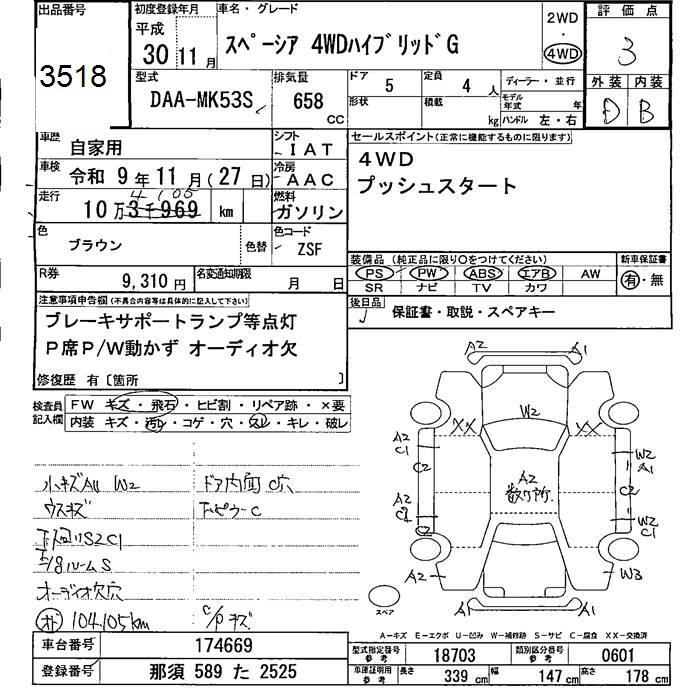 出品番号
3518
初度登録年月
平成
30 11 月
車名・グレード
スペーシア 4WDハイブリッドG
2WD
・
4WD
評価点
3
型式
DAA-MK53S
排気量
658
CC
ドア
5
定員
4 人
ディーラー・並行
形状
積載
kg
モデル年式 年
ハンドル 左・右
外装 内装
D B
車歴
自家用
シフト
IAT
セールスポイント(正常に機能するものに限ります)
4WD
プッシュスタート
車検
令和 9 年 11 月 ( 27 日)
冷房
AAC
走行
4 105
10 万 3 千 969 km
燃料
ガソリン
色
ブラウン
色替
色コード
ZSF
装備品 (純正品に限り○をつけてください)
PS PW ABS エアB AW
SR ナビ TV カワ
新車保証書
有・無
R券
9,310 円
名変通知期限
月 日
後日品
保証書・取説・スペアキー
注意事項申告欄(不具合内容等は具体的に記入して下さい)
ブレーキサポートランプ等点灯
P席P/W動かず オーディオ欠
修復歴 有〔箇所 〕
検査員記入欄
FW キズ・飛石・ヒビ割・リペア跡・×要
内装 キズ・汚レ・コゲ・穴・スレ・キレ・破レ
小キズAU W2
ドア内面 C穴
ウスキズ
下ピラーC
下回りS2C1
E/gルームS
オーディオ欠穴
104,105km
C/Pキズ
A2 A1
W2
XX XX
A2
C1
C2
W2
A1
A2
数ヶ所
C2
A2
C2
C2
W2
C1
A2 W3
A1 A1
スペア
A-キズ E-エクボ U-凹み W-補修跡 S-サビ C-腐食 XX-交換済
車台番号
174669
登録番号
那須 589 た 2525
型式指定番号
参考
18703
類別区分番号
参考
0601
車庫証明用
参考
長さ
339 cm
幅
147 cm
高さ
178 cm